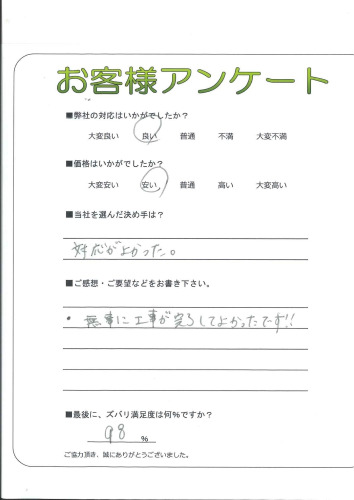 お客様アンケート
■弊社の対応はいかがでしたか？
大変良い 良い 普通 不満 大変不満
■価格はいかがでしたか？
大変安い 安い 普通 高い 大変高い
■当社を選んだ決め手は？
対応がよかった。
■ご感想・ご要望などをお書き下さい。
・無事に工事が完了してよかったです!!
■最後に、ズバリ満足度は何％ですか？
98 ％
ご協力頂き、誠にありがとうございました。